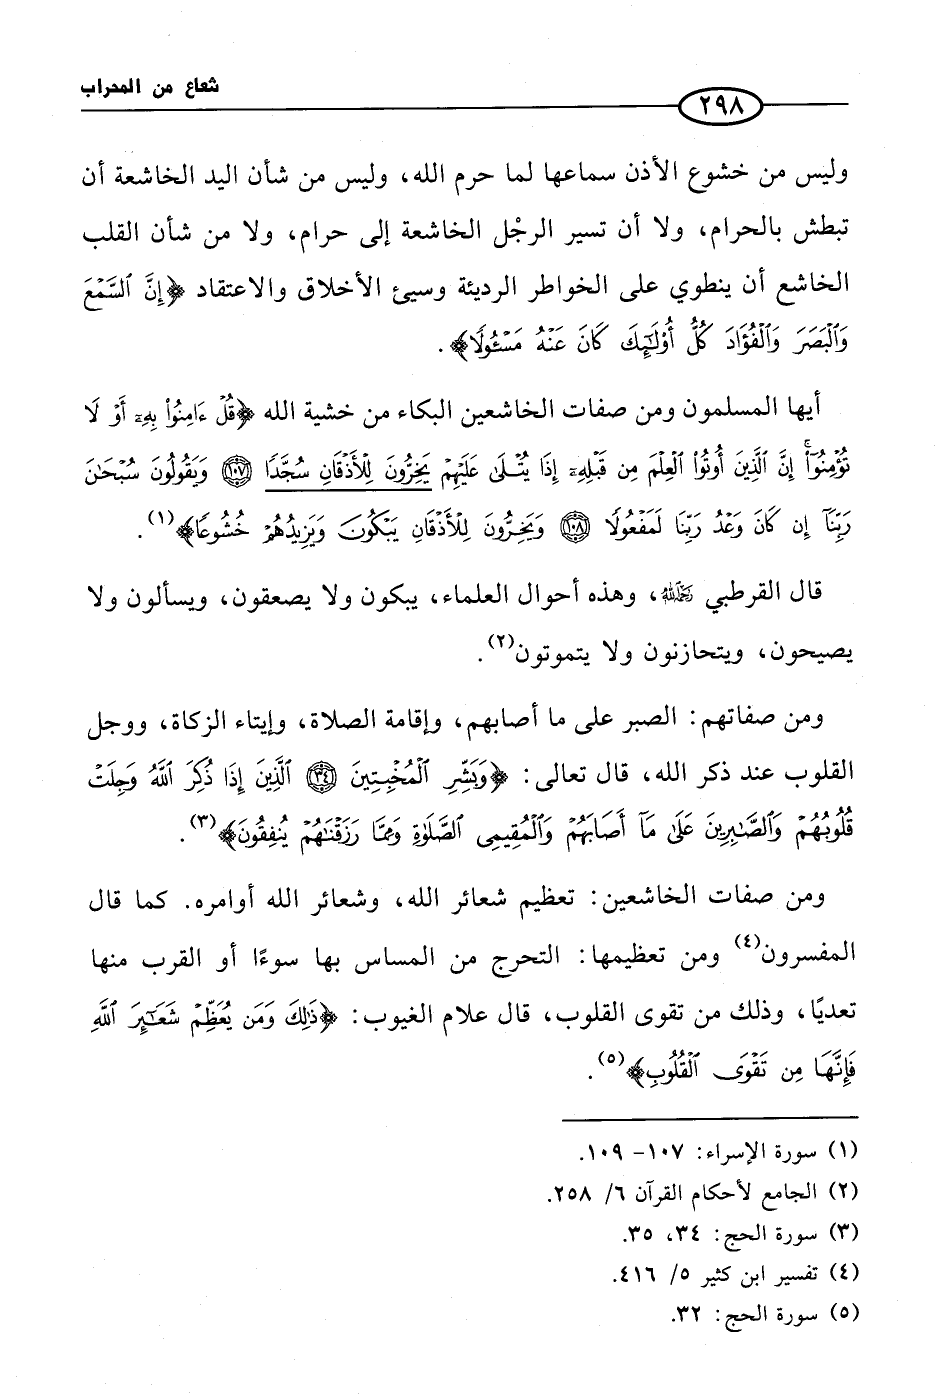 شعاع من المحراب
٢٩٨
وليس من خشوع الأذن سماعها لما حرم الله، وليس من شأن اليد الخاشعة أن
تبطش بالحرام، ولا أن تسير الرجْل الخاشعة إلى حرام، ولا من شأن القلب
الخاشع أن ينطوي على الخواطر الرديئة وسيئ الأخلاق والاعتقاد ﴿إِنَّ ٱلسَّمۡعَ
وَٱلۡبَصَرَ وَٱلۡفُؤَادَ كُلُّ أُوْلَٰٓئِكَ كَانَ عَنۡهُ مَسۡـُٔولًا﴾.
أيها المسلمون ومن صفات الخاشعين البكاء من خشية الله ﴿قُلۡ ءَامِنُواْ بِهِۦٓ أَوۡ لَا
تُؤۡمِنُوٓاْۚ إِنَّ ٱلَّذِينَ أُوتُواْ ٱلۡعِلۡمَ مِن قَبۡلِهِۦٓ إِذَا يُتۡلَىٰ عَلَيۡهِمۡ يَخِرُّونَ لِلۡأَذۡقَانِ سُجَّدٗا ۝١٠٧ وَيَقُولُونَ سُبۡحَٰنَ
رَبِّنَآ إِن كَانَ وَعۡدُ رَبِّنَا لَمَفۡعُولٗا ۝١٠٨ وَيَخِرُّونَ لِلۡأَذۡقَانِ يَبۡكُونَ وَيَزِيدُهُمۡ خُشُوعٗا﴾(١).
قال القرطبي رحمه الله، وهذه أحوال العلماء، يبكون ولا يصعقون، ويسألون ولا
يصيحون، ويتحازنون ولا يتموتون(٢).
ومن صفاتهم: الصبر على ما أصابهم، وإقامة الصلاة، وإيتاء الزكاة، ووجل
القلوب عند ذكر الله، قال تعالى: ﴿وَبَشِّرِ ٱلۡمُخۡبِتِينَ ۝٣٤ ٱلَّذِينَ إِذَا ذُكِرَ ٱللَّهُ وَجِلَتۡ
قُلُوبُهُمۡ وَٱلصَّٰبِرِينَ عَلَىٰ مَآ أَصَابَهُمۡ وَٱلۡمُقِيمِي ٱلصَّلَوٰةِ وَمِمَّا رَزَقۡنَٰهُمۡ يُنفِقُونَ﴾(٣).
ومن صفات الخاشعين: تعظيم شعائر الله، وشعائر الله أوامره. كما قال
المفسرون(٤) ومن تعظيمها: التحرج من المساس بها سوءًا أو القرب منها
تعديًا، وذلك من تقوى القلوب، قال علام الغيوب: ﴿ذَٰلِكَ وَمَن يُعَظِّمۡ شَعَٰٓئِرَ ٱللَّهِ
فَإِنَّهَا مِن تَقۡوَى ٱلۡقُلُوبِ﴾(٥).
(١) سورة الإسراء: ١٠٧- ١٠٩.
(٢) الجامع لأحكام القرآن ٦/ ٢٥٨.
(٣) سورة الحج: ٣٤، ٣٥.
(٤) تفسير ابن كثير ٥/ ٤١٦.
(٥) سورة الحج: ٣٢.